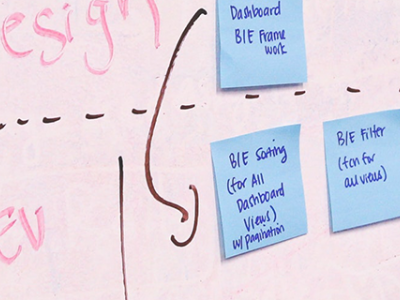 esign
Dashboard
B/E Frame
work
B/E Sorting
(for All
Dashboard
Views)
w/ pagination
B/E Filter
(fcn for
all views)
EV